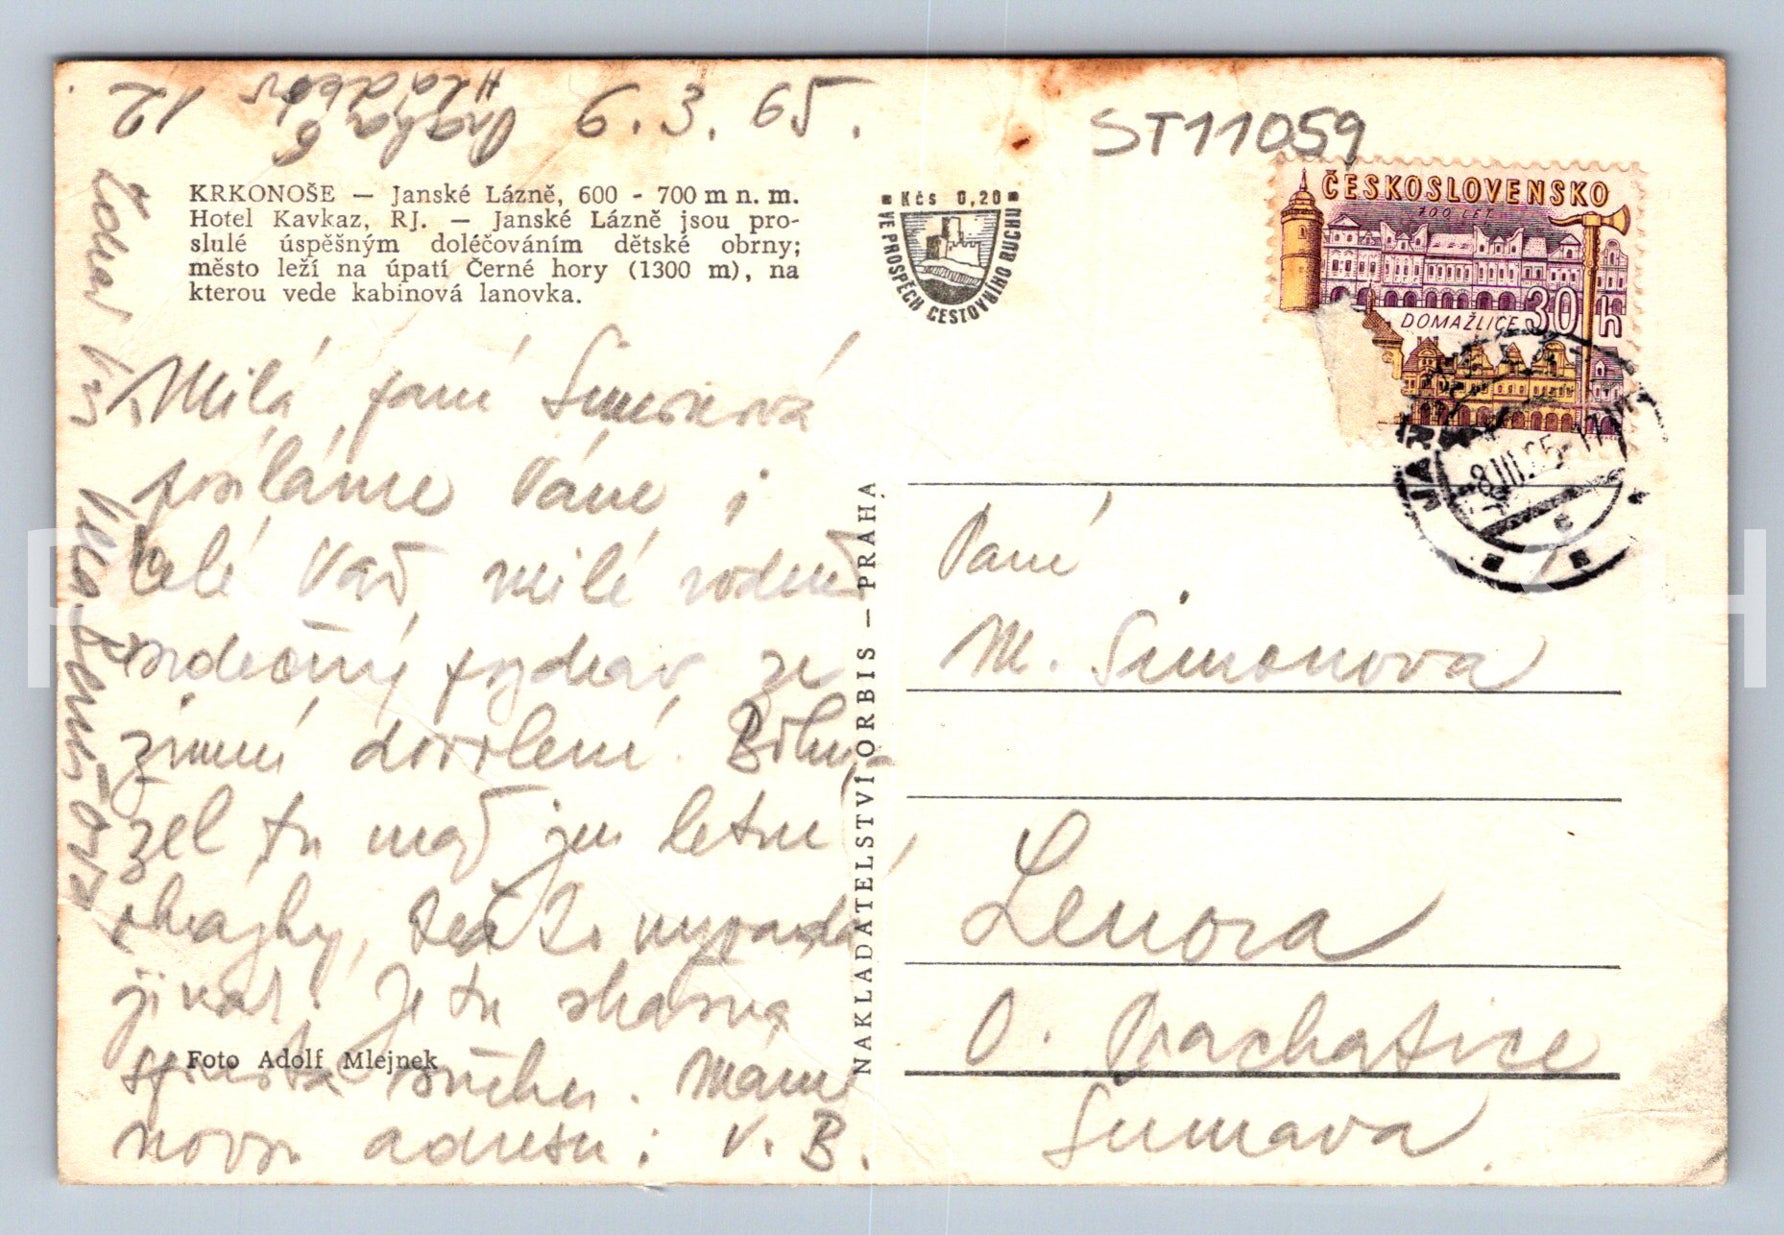 6. 3. 65.
ST11059
12
Praha 6
KRKONOŠE — Janské Lázně, 600 - 700 m n. m.
Hotel Kavkaz, RJ. — Janské Lázně jsou pro-
slulé úspěšným doléčováním dětské obrny;
město leží na úpatí Černé hory (1300 m), na
kterou vede kabinová lanovka.
Kčs 0,20
VE PROSPĚCH CESTOVNÍHO RUCHU
ČESKOSLOVENSKO
700 LET
DOMAŽLICE 30 h
8.III.65-17
Milá paní Simonová
posíláme Vám i
celé Vaší milé rodině
srdečný pozdrav ze
zimní dovolené. Bohu-
žel tu mají jen letní
obrázky,
Je tu
sněhu. Máme
novou adresu: V. B.
Foto Adolf Mlejnek
NAKLADATELSTVÍ ORBIS — PRAHA
Paní
M. Simonova
Lenora
O. Prachatice
Šumava